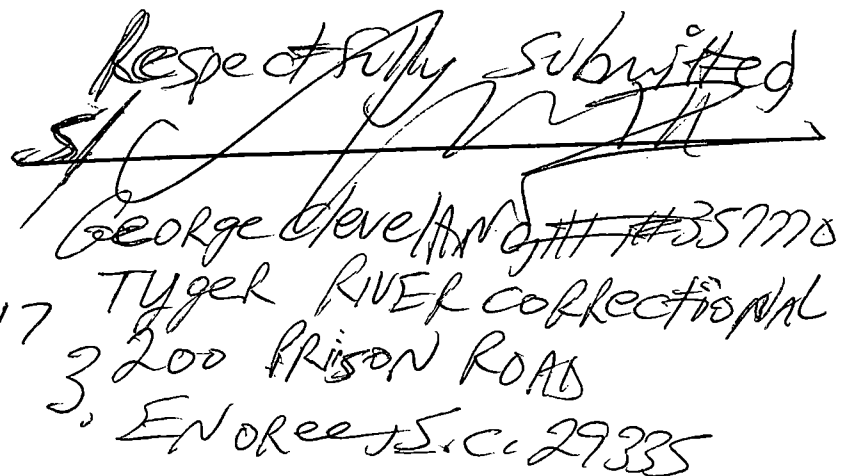 Respectfully submitted
S/
George Cleveland III #357770
Tyger River Correctional
17
200 Prison Road
3.
Enoree, S.C. 29335